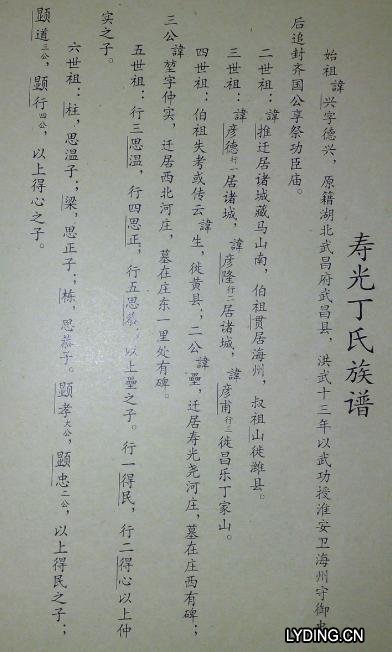 寿光丁氏族谱
始祖諱兴字德兴，原籍湖北武昌府武昌县，洪武十三年以武功授淮安卫海州守御
后追封齐国公享祭功臣庙。
二世祖：諱推迁居诸城藏马山南，伯祖贯居海州，叔祖山徙潍县。
三世祖：諱彦德行一居诸城，諱彦隆行二居诸城，諱彦甫行三徙昌乐丁家山。
四世祖：伯祖失考或传云諱生，徙黄县；二公諱壘，迁居寿光尧河庄，墓在庄西有碑；
三公諱埜字仲实，迁居西北河庄，墓在庄东一里处有碑。
五世祖：行三思温，行四思正，行五思恭，以上壘之子。行一得民，行二得心以上仲
实之子。
六世祖：柱，思温子；梁，思正子；栋，思恭子。顕孝大公，顕忠二公，以上得民之子；
顕道三公，顕行四公，以上得心之子。
LYDING.CN